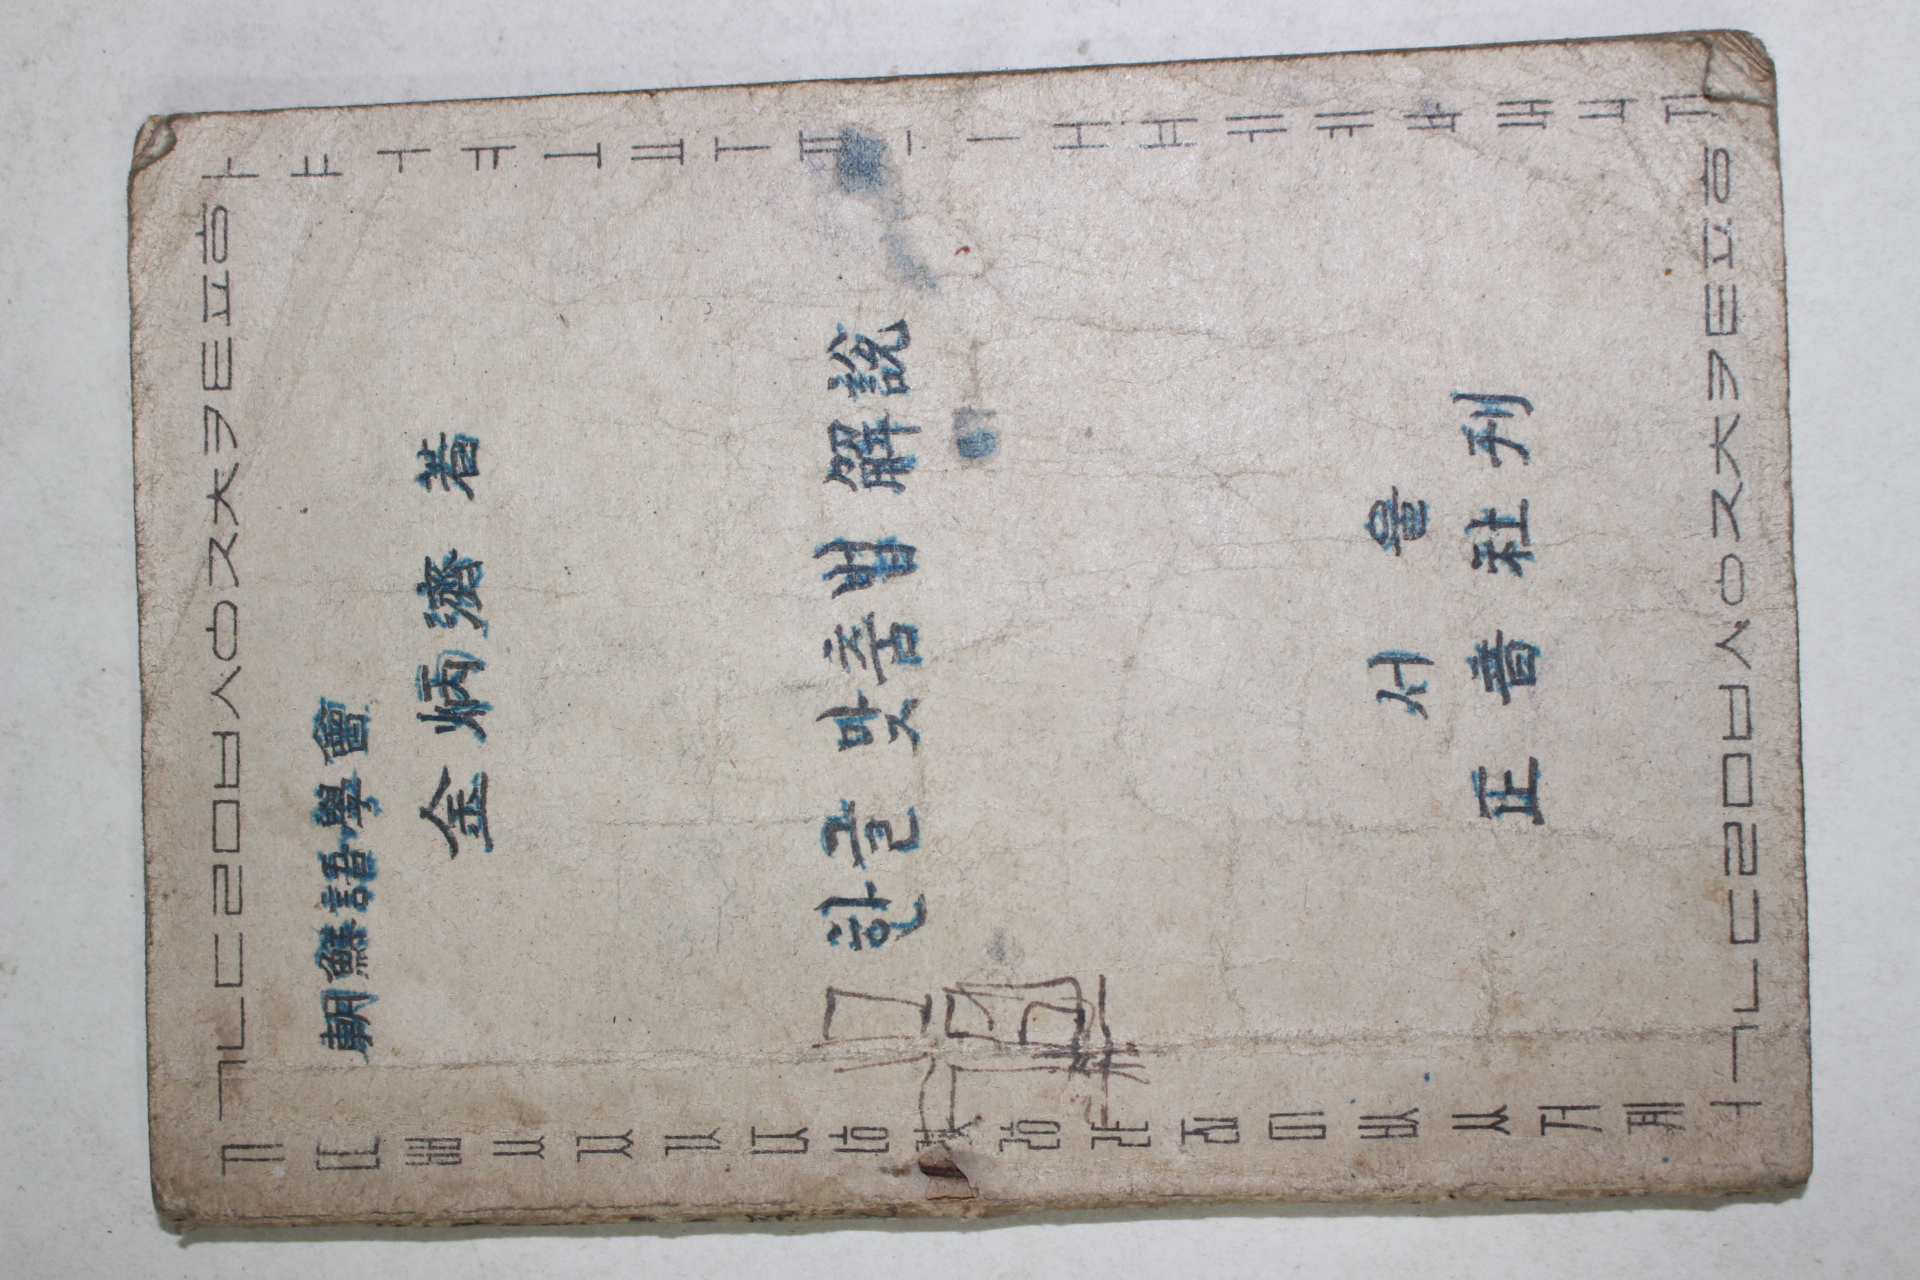 ㄱㄴㄷㄹㅁㅂㅅㅇㅈㅊㅋㅌㅍㅎ
朝鮮語學會
金炳濟 著
한글 맞춤법 解說
서울
正音社刊
ㄱㄴㄷㄹㅁㅂㅅㅇㅈㅊㅋㅌㅍㅎ
ㄲㄸㅃㅆㅉㄳㄵㄶ
ㅏㅑㅓㅕㅗㅛㅜㅠㅡㅣㅐㅒㅔㅖㅘㅙㅚ